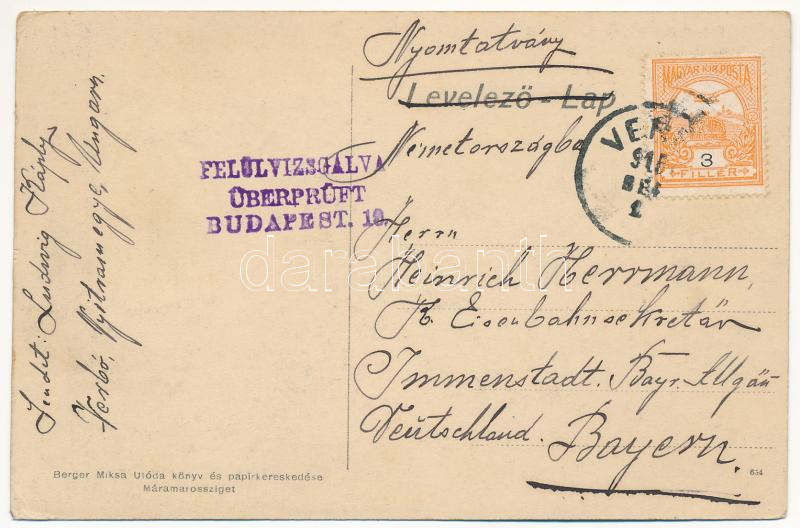 Nyomtatvány
Levelező - Lap
Németországba
MAGYAR KIR. POSTA
3
FILLÉR
915
FELÜLVIZSGÁLVA
ÜBERPRÜFT
BUDAPEST. 10.
Herrn
Heinrich Herrmann,
K. Eisenbahnsekretär
Immenstadt. Bayr. Allgäu
Deutschland. Bayern.
Sendet: Ludwig
Verbó, Nyitramegye, Ungarn.
darabanth
Berger Miksa Utóda könyv és papirkereskedése
Máramarossziget
654